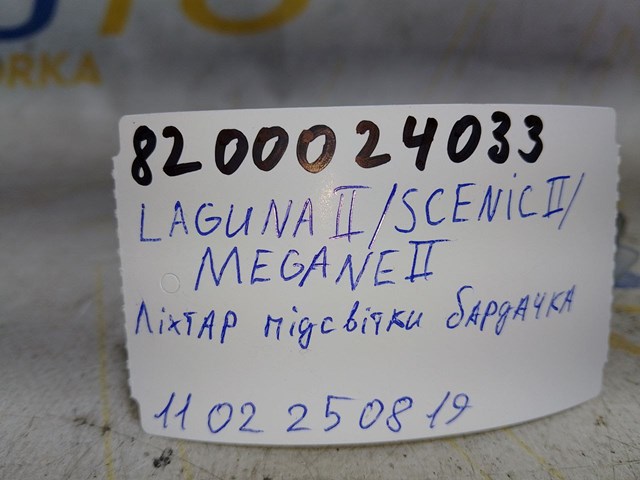 ORKA
8200024033
LAGUNA II/SCENIC II/
MEGANE II
Ліхтар підсвітки бардачка
11 02 250819